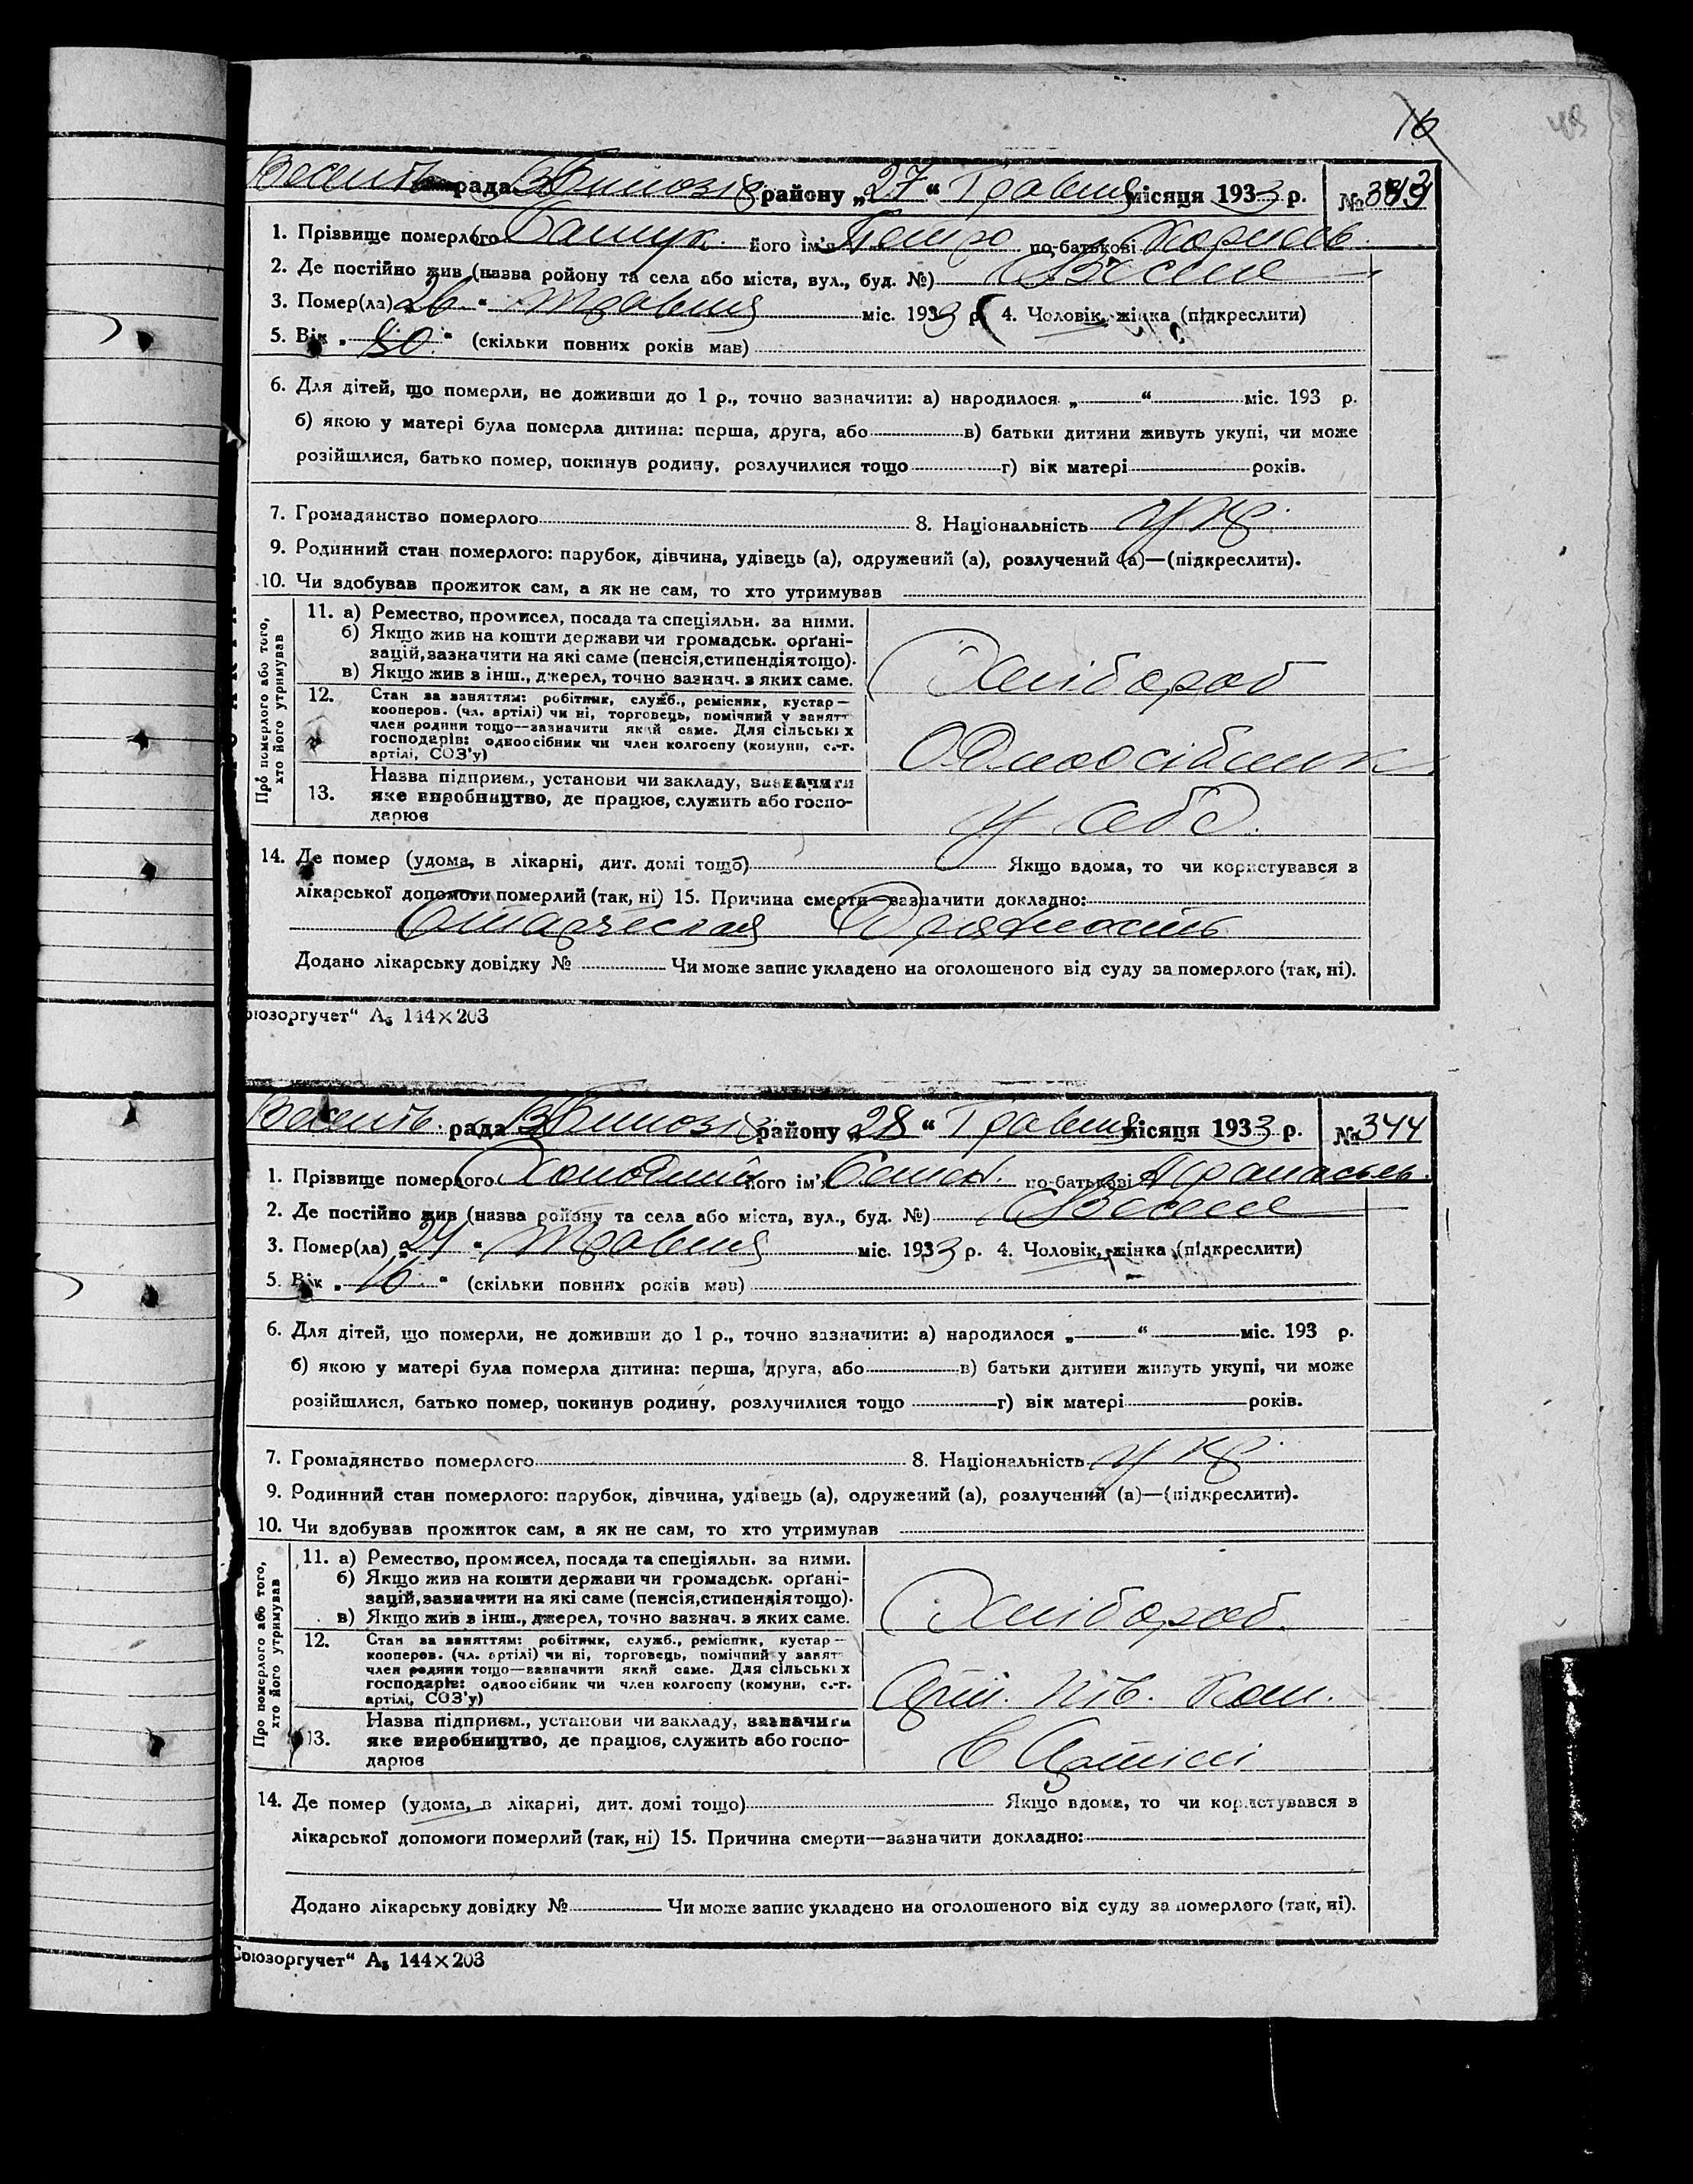 16
рада району „27“ Травня місяця 1933 р. №
1. Прізвище померлого його ім'я Петро по-батькові
2. Де постійно жив (назва ройону та села або міста, вул., буд. №) Веселе
3. Помер(ла) „26“ травня міс. 1933 р. 4. Чоловік, жінка (підкреслити)
5. Вік „80.“ (скільки повних років мав)
6. Для дітей, що померли, не доживши до 1 р., точно зазначити: а) народилося „ “ міс. 193 р.
б) якою у матері була померла дитина: перша, друга, або в) батьки дитини живуть укупі, чи може
розійшлися, батько помер, покинув родину, розлучилися тощо г) вік матері років.
7. Громадянство померлого 8. Національність укр.
9. Родинний стан померлого: парубок, дівчина, удівець (а), одружений (а), розлучений (а)—(підкреслити).
10. Чи здобував прожиток сам, а як не сам, то хто утримував
Про померлого або того,
хто його утримував
11. а) Ремество, промисел, посада та спеціяльн. за ними.
б) Якщо жив на кошти держави чи громадськ. орґані-
зацій, зазначити на які саме (пенсія, стипендія тощо).
в) Якщо жив в інш., джерел, точно зазнач. з яких саме.
Хлібороб
12. Стан за заняттям: робітник, служб., ремісник, кустар—
кооперов. (чл. артілі) чи ні, торговець, помічний у занятт
член родини тощо—зазначити який саме. Для сільських
господарів: одноосібник чи член колгоспу (комуни, с.-г.
артілі, СОЗ'у)
Одноосібник
13. Назва підприєм., установи чи закладу, зазначити
яке виробництво, де працює, служить або госпо-
дарює
У себе.
14. Де помер (удома, в лікарні, дит. домі тощо) Якщо вдома, то чи користувався з
лікарської допомоги померлий (так, ні) 15. Причина смерти—зазначити докладно:
Старческая Дряхлость
Додано лікарську довідку № Чи може запис укладено на оголошеного від суду за померлого (так, ні).
оюзоргучет“ А₅ 144×203
рада району „28“ Травня місяця 1933 р. №344
1. Прізвище померлого Холодний його ім'я по-батькові Афанасьев.
2. Де постійно жив (назва ройону та села або міста, вул., буд. №) Веселе
3. Помер(ла) „27“ травня міс. 1933 р. 4. Чоловік, жінка (підкреслити)
5. Вік „16.“ (скільки повних років мав)
6. Для дітей, що померли, не доживши до 1 р., точно зазначити: а) народилося „ “ міс. 193 р.
б) якою у матері була померла дитина: перша, друга, або в) батьки дитини живуть укупі, чи може
розійшлися, батько помер, покинув родину, розлучилися тощо г) вік матері років.
7. Громадянство померлого 8. Національність укр.
9. Родинний стан померлого: парубок, дівчина, удівець (а), одружений (а), розлучений (а)—(підкреслити).
10. Чи здобував прожиток сам, а як не сам, то хто утримував
Про померлого або того,
хто його утримував
11. а) Ремество, промисел, посада та спеціяльн. за ними.
б) Якщо жив на кошти держави чи громадськ. орґані-
зацій, зазначити на які саме (пенсія, стипендія тощо).
в) Якщо жив в інш., джерел, точно зазнач. з яких саме.
Хлібороб.
12. Стан за заняттям: робітник, служб., ремісник, кустар—
кооперов. (чл. артілі) чи ні, торговець, помічний у занят
член родини тощо—зазначити який саме. Для сільських
господарів: одноосібник чи член колгоспу (комуни, с.-г.
артілі, СОЗ'у)
13. Назва підприєм., установи чи закладу, зазначити
яке виробництво, де працює, служить або госпо-
дарює
В Артілі
14. Де помер (удома, в лікарні, дит. домі тощо) Якщо вдома, то чи користувався з
лікарської допомоги померлий (так, ні) 15. Причина смерти—зазначити докладно:
Додано лікарську довідку № Чи може запис укладено на оголошеного від суду за померлого (так, ні).
Союзоргучет“ А₅ 144×203